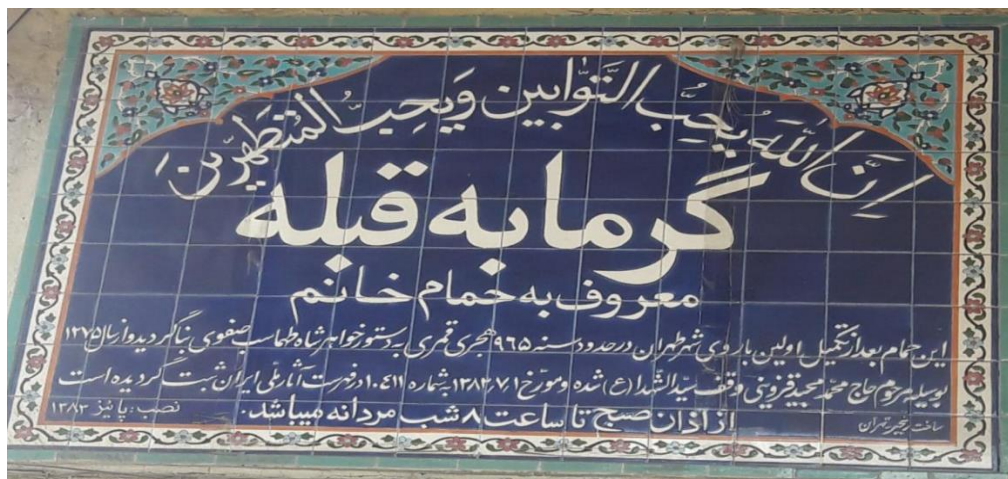 إِنَّ اللّٰهَ يُحِبُّ التَّوّٰابينَ وَيُحِبُّ المُتَطَهِّرينَ
گرمابه قبله
معروف به حمام خانم
این حمام بعد از تکمیل اولین باروی شهر طهران در حدود سنه ۹۶۵ هجری قمری به دستور خواهر شاه طهماسب صفوی بنا گردید و از سال ۱۲۷۵
بوسیله مرحوم حاج محمد مجید قزوینی وقف سیّد الشّهدا (ع) شده و مورّخ ۱۳۸۲،۷،۱ به شماره ۱۰۴۱۱ در فهرست آثار ملّی ایران ثبت گردیده است
از اذان صبح تا ساعت ۸ شب مردانه میباشد.
ساخت تهران
نصب: پائیز ۱۳۸۳